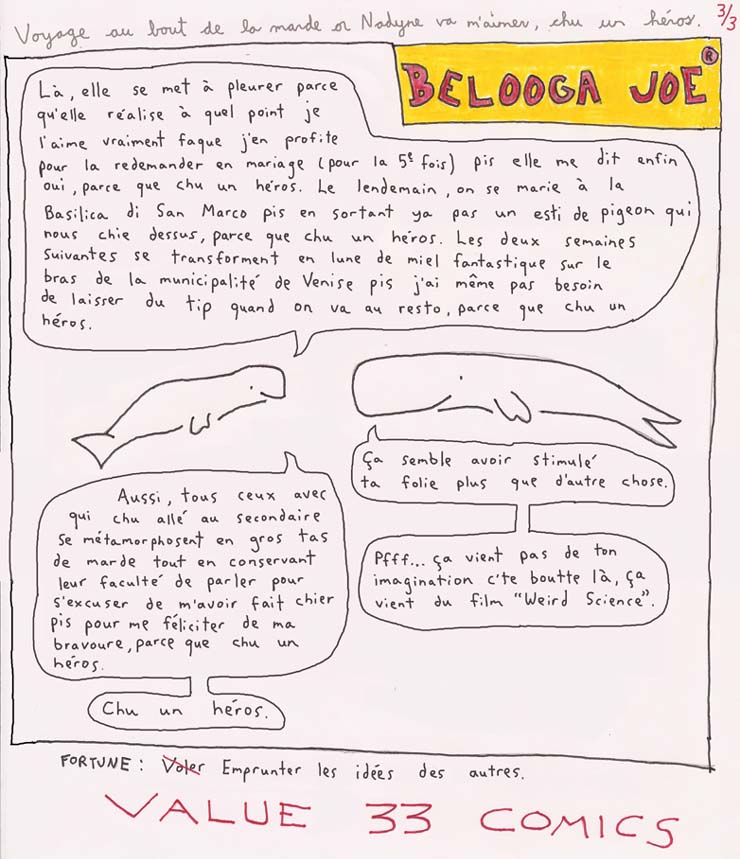 Voyage au bout de la marde or Nadyne va m'aimer, chu un héros. 3/3
BELOOGA JOE ®
Là, elle se met à pleurer parce
qu'elle réalise à quel point je
l'aime vraiment faque j'en profite
pour la redemander en mariage (pour la 5e fois) pis elle me dit enfin
oui, parce que chu un héros. Le lendemain, on se marie à la
Basilica di San Marco pis en sortant ya pas un esti de pigeon qui
nous chie dessus, parce que chu un héros. Les deux semaines
suivantes se transforment en lune de miel fantastique sur le
bras de la municipalité de Venise pis j'ai même pas besoin
de laisser du tip quand on va au resto, parce que chu un
héros.
Ça semble avoir stimulé
ta folie plus que d'autre chose.
Aussi, tous ceux avec
qui chu allé au secondaire
se métamorphosent en gros tas
de marde tout en conservant
leur faculté de parler pour
s'excuser de m'avoir fait chier
pis pour me féliciter de ma
bravoure, parce que chu un
héros.
Pfff... ça vient pas de ton
imagination c'te boutte là, ça
vient du film "Weird Science".
Chu un héros.
FORTUNE : Voler Emprunter les idées des autres.
VALUE 33 COMICS